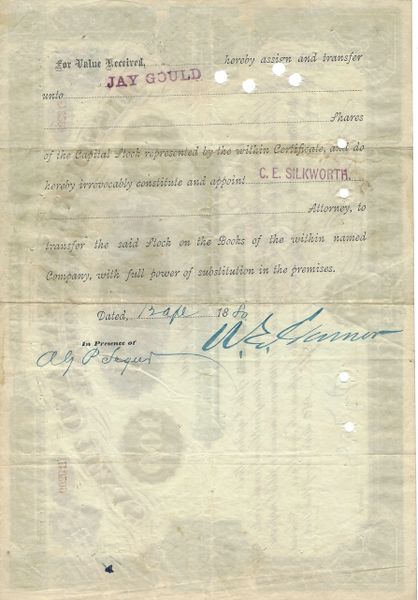 For Value Received, hereby assign and transfer
JAY GOULD
unto
Shares
of the Capital Stock represented by the within Certificate, and do
hereby irrevocably constitute and appoint C. E. SILKWORTH.
Attorney, to
transfer the said Stock on the Books of the within named
Company, with full power of substitution in the premises.
Dated, 12 Apl 1880
In Presence of